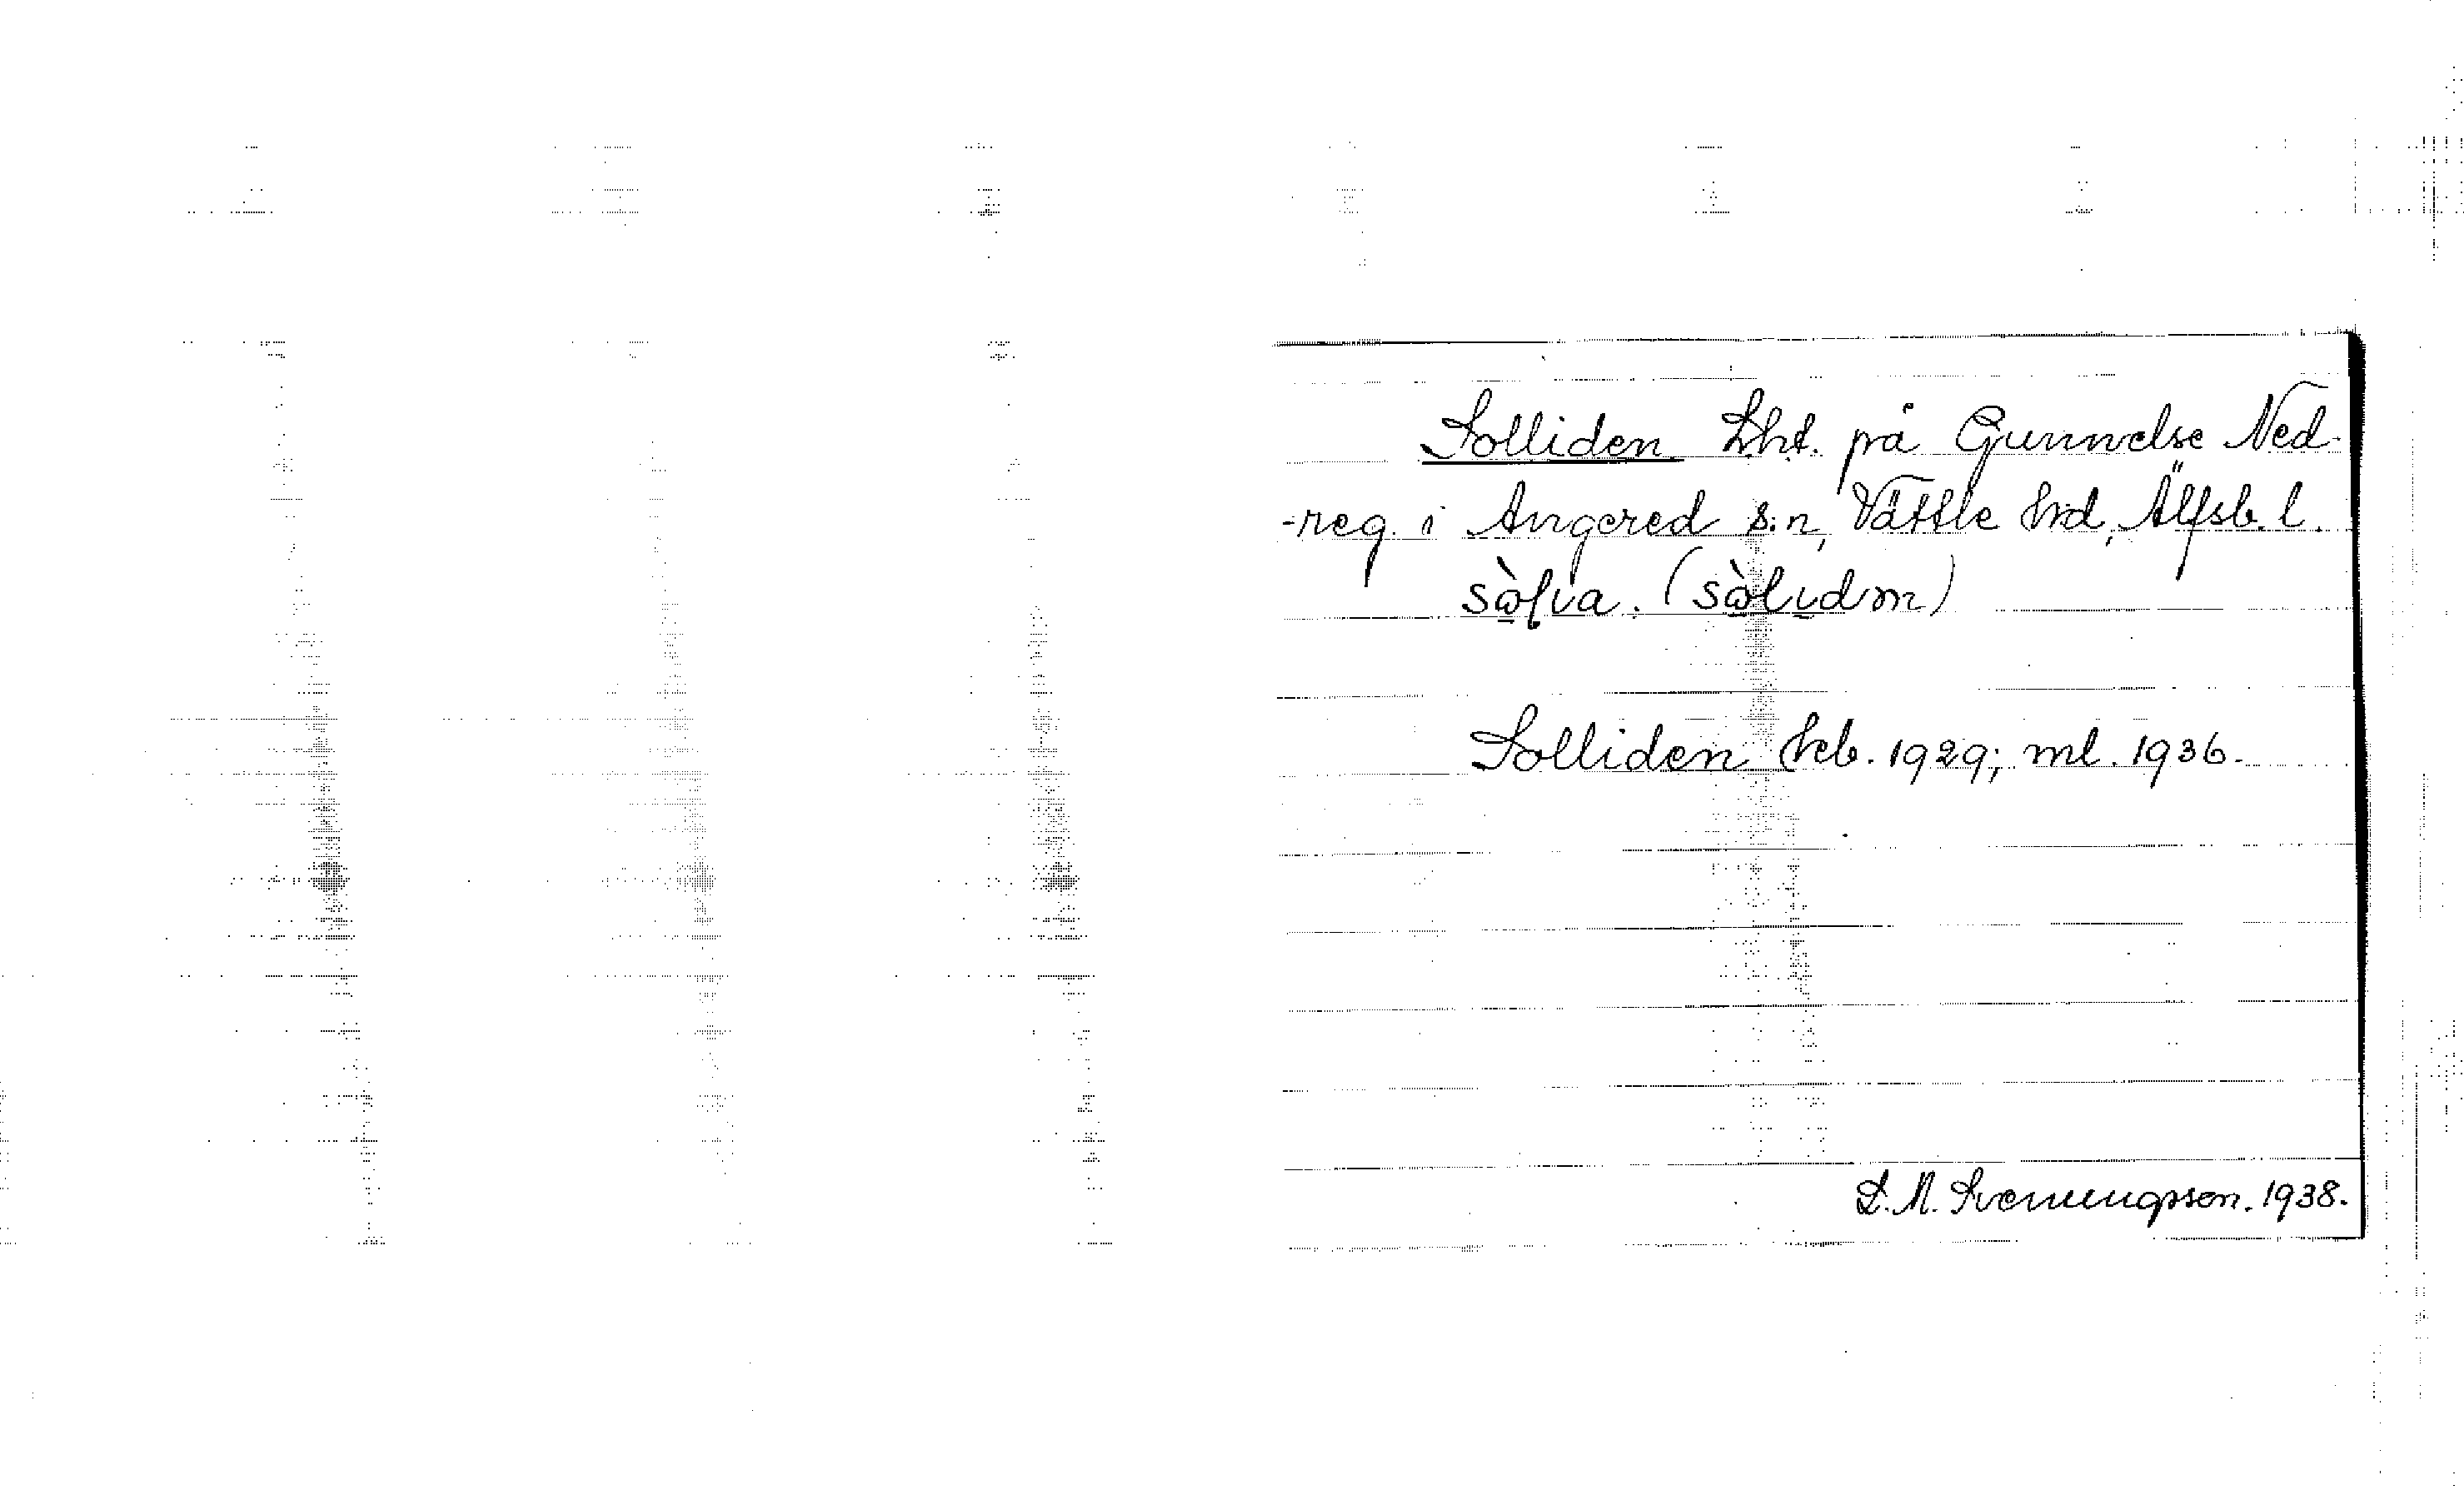 Solliden. Lht. på Gunnelse Ned-
-reg. i Angered s:n, Vättle hrd, Älfsb. l.
sòlia. (sòlidn)
Solliden kb. 1929; ml. 1936.
S.M. Svenungsson. 1938.